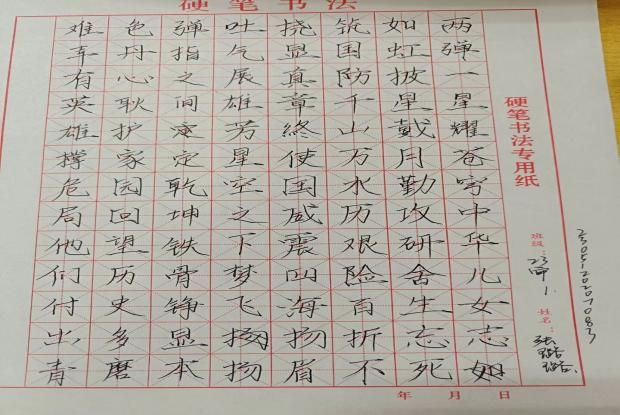 硬笔书法
硬笔书法专用纸
班级：23
姓名：张
两弹一星耀苍穹中华儿女志如
如虹披星戴月勤攻研舍生忘死
筑国防千山万水历艰险百折不
挠显真章終使国威震四海扬眉
吐气展雄芳星空之下梦飞扬扬
弹指之间定乾坤铁骨铮显本
色丹心耿护家园回望历史多磨
难有英雄撑危局他们付出青
年 月 日